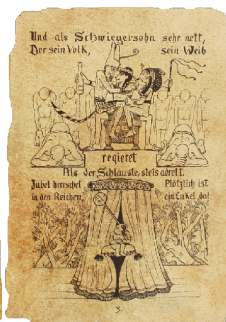 Und als Schwiegersohn sehr nett,
Der sein Volk, sein Weib
regieret
Als der Schlauste, stets adrett.
Jubel herrschet Plötzlich ist
in den Reichen, ein Enkel da!
3.